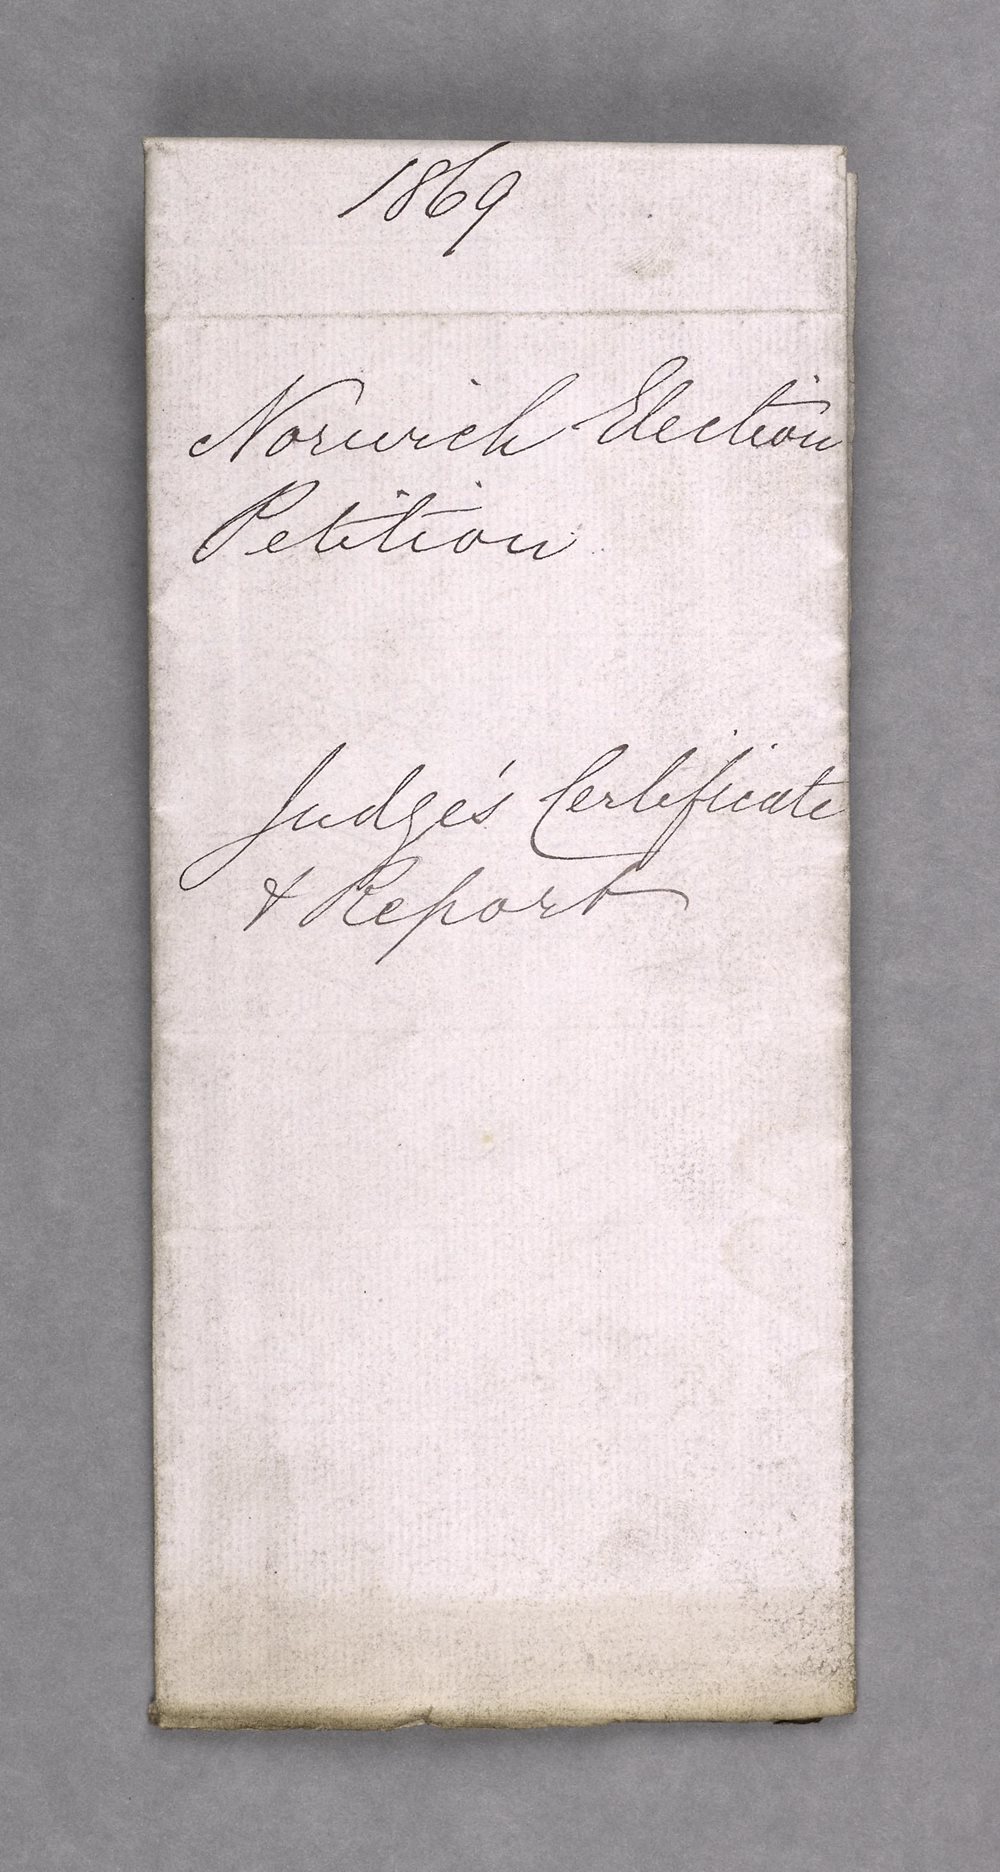 1869
Norwich Election
Petition
Judge's Certificate
& Report